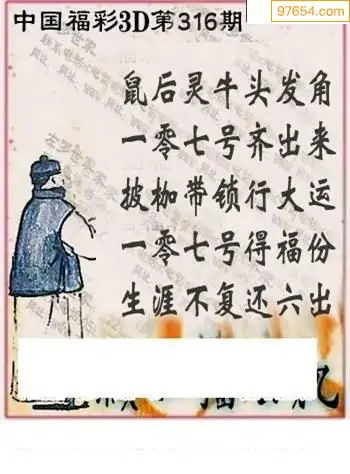 97654.com
中国福彩3D第316期
鼠后灵牛头发角
一零七号齐出来
披枷带锁行大运
一零七号得福份
生涯不复还六出